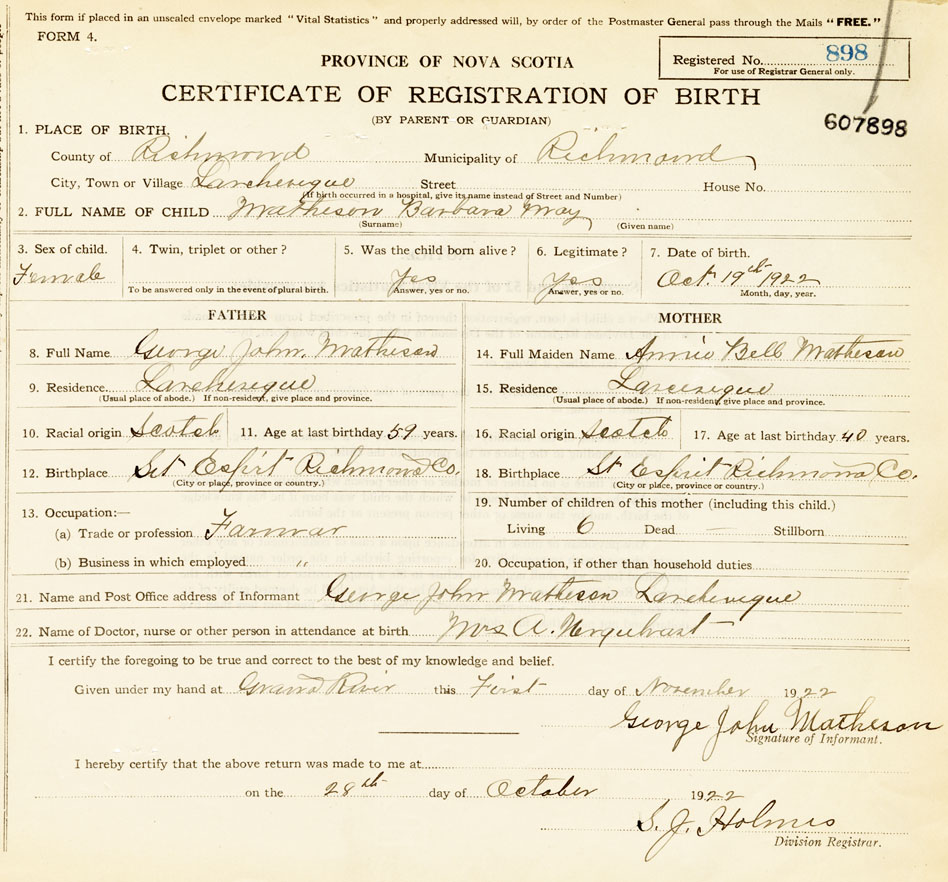 This form if placed in an unsealed envelope marked "Vital Statistics" and properly addressed will, by order of the Postmaster General pass through the Mails "FREE."
FORM 4.
Registered No. 898
For use of Registrar General only.
PROVINCE OF NOVA SCOTIA
CERTIFICATE OF REGISTRATION OF BIRTH
(BY PARENT OR GUARDIAN)
607898
1. PLACE OF BIRTH.
County of Richmond Municipality of Richmond
City, Town or Village Larcheveque Street House No.
(If birth occurred in a hospital, give its name instead of Street and Number)
2. FULL NAME OF CHILD Matheson Barbara May
(Surname) (Given name)
3. Sex of child. 4. Twin, triplet or other? 5. Was the child born alive? 6. Legitimate? 7. Date of birth.
Female Yes Yes Oct. 19th 1922
To be answered only in the event of plural birth. Answer, yes or no. Answer, yes or no. Month, day, year.
FATHER MOTHER
8. Full Name George John Matheson 14. Full Maiden Name Annie Bell Matheson
9. Residence Larcheveque 15. Residence Larceveque
(Usual place of abode.) If non-resident, give place and province. (Usual place of abode.) If non-resident, give place and province.
10. Racial origin Scotch 11. Age at last birthday 59 years. 16. Racial origin Scotch 17. Age at last birthday 40 years.
12. Birthplace St Espirt Richmond Co. 18. Birthplace St Esprit Richmond Co.
(City or place, province or country.) (City or place, province or country.)
13. Occupation:— 19. Number of children of this mother (including this child.)
(a) Trade or profession Farmar Living 6 Dead — Stillborn
(b) Business in which employed " 20. Occupation, if other than household duties
21. Name and Post Office address of Informant George John Matheson Larcheveque
22. Name of Doctor, nurse or other person in attendance at birth Mrs A. Urquhart
I certify the foregoing to be true and correct to the best of my knowledge and belief.
Given under my hand at Grand River this First day of November 1922
George John Matheson
Signature of Informant.
I hereby certify that the above return was made to me at
on the 28th day of October 1922
S. J. Holmes
Division Registrar.